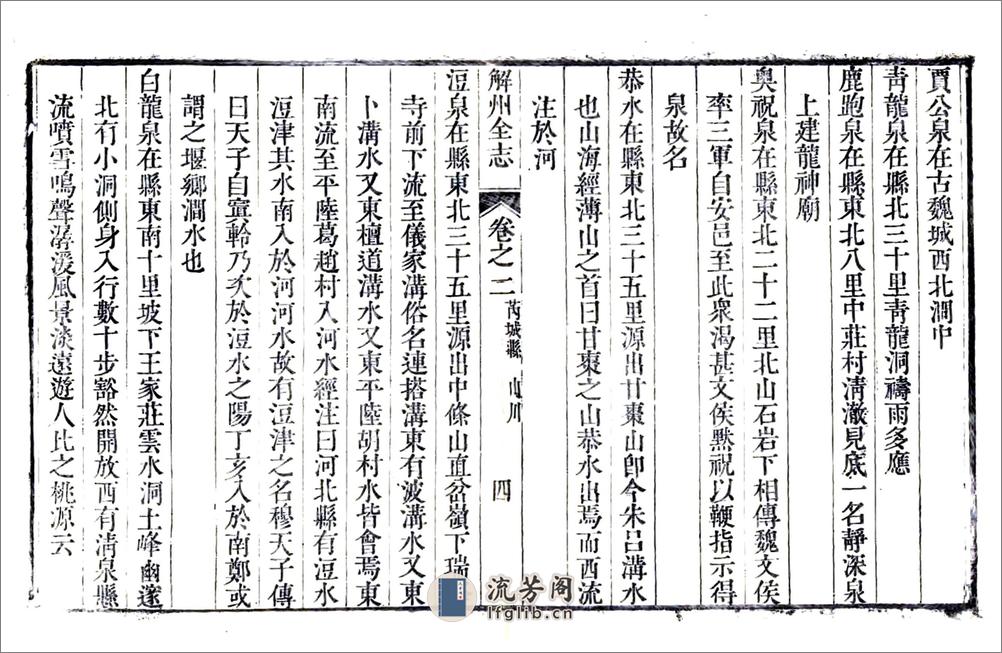 賈公泉在古魏城西北澗中
靑龍泉在縣北三十里靑龍洞禱雨多應
鹿跑泉在縣東北八里中莊村淸澈見底一名靜深泉
上建龍神廟
奥祝泉在縣東北二十二里北山石岩下相傳魏文侯
率三軍自安邑至此衆渴甚文侯黙祝以鞭指示得
泉故名
恭水在縣東北三十五里源出甘棗山卽今朱呂溝水
也山海經薄山之首曰甘棗之山恭水出焉而西流
注於河
解州全志
卷之二
芮城縣 山川
四
浢泉在縣東北三十五里源出中條山直岔嶺下瑞
寺前下流至儀家溝俗名連搭溝東有波溝水又東
卜溝水又東檀道溝水又東平陸胡村水皆會焉東
南流至平陸葛趙村入河水經注曰河北縣有浢水
浢津其水南入於河河水故有浢津之名穆天子傳
曰天子自寘軨乃次於浢水之陽丁亥入於南鄭或
謂之堰鄉澗水也
白龍泉在縣東南十里坡下王家莊雲水洞土峰幽邃
北有小洞側身入行數十步豁然開放西有淸泉縣
流噴雪鳴聲潺湲風景淡遠遊人比之桃源云
流芳阁
lfglib.cn